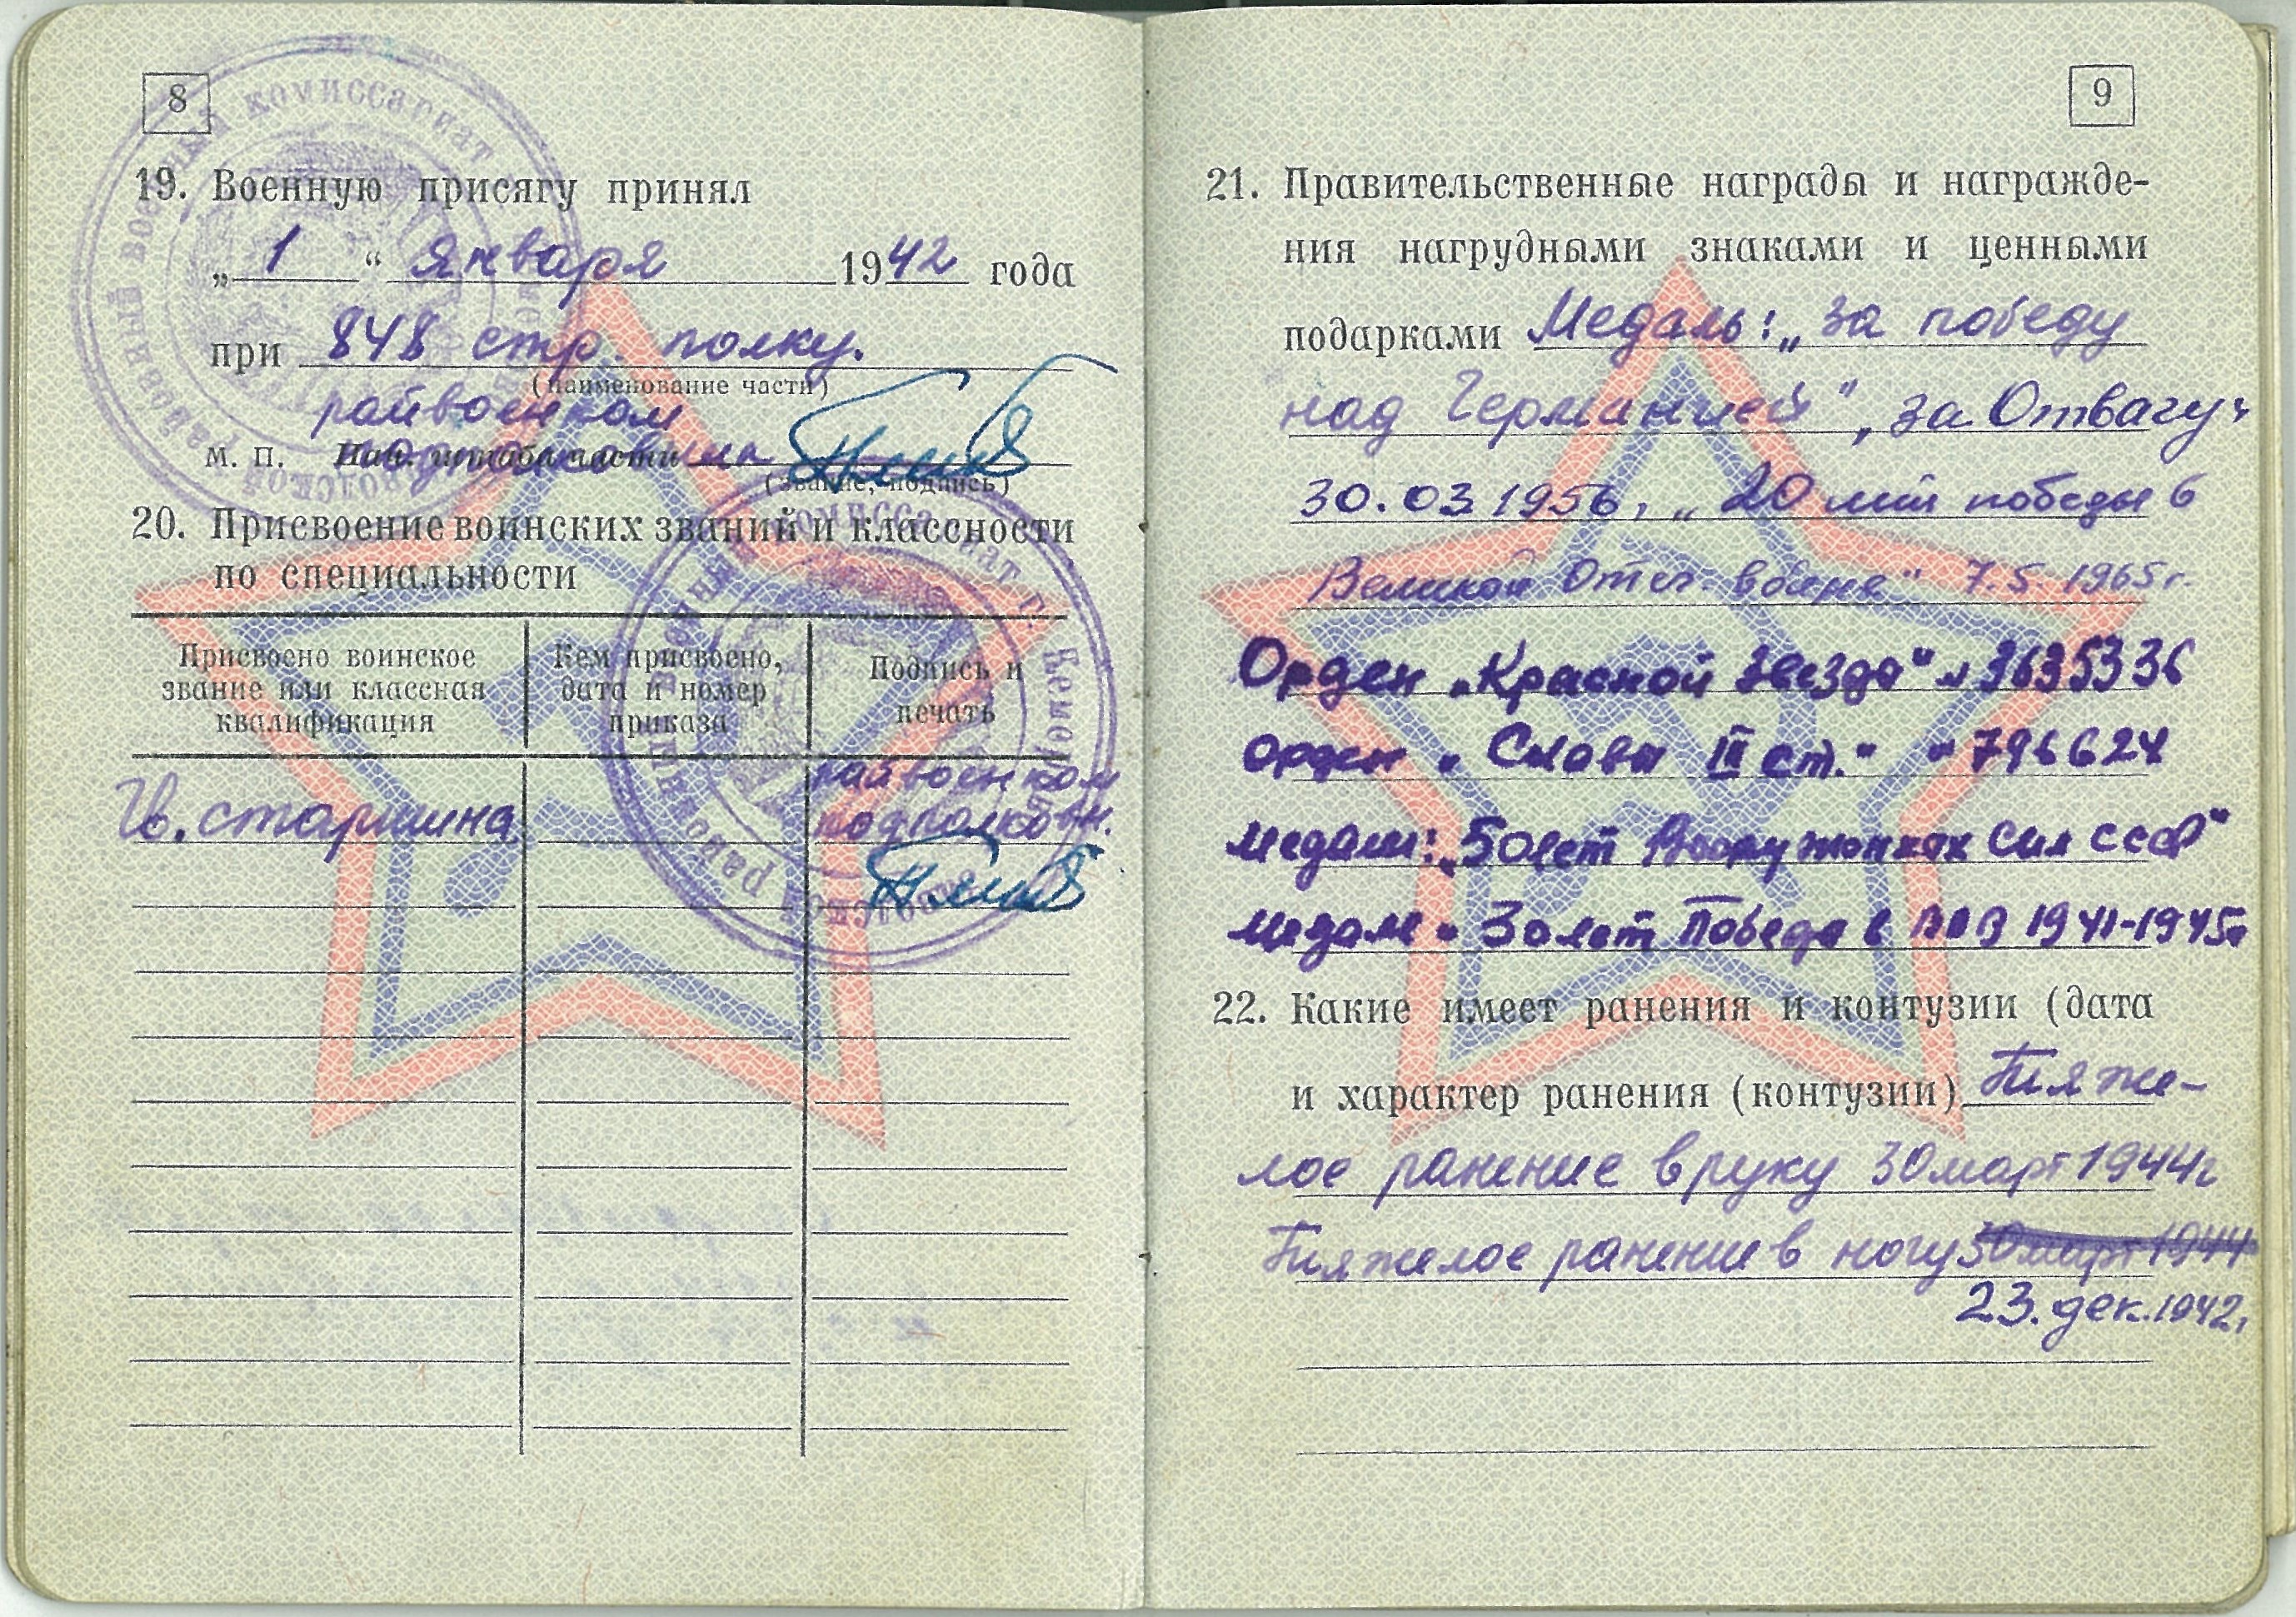 8
19. Военную присягу принял
„ 1 “ января 1942 года
при 848 стр. полку.
(наименование части)
райвоенком
М. П. Нач. штаба части
(звание, подпись)
20. Присвоение воинских званий и классности
по специальности
Присвоено воинское
звание или классная
квалификация
Кем присвоено,
дата и номер
приказа
Подпись и
печать
Гв. старшина
райвоенком
подполковн.
9
21. Правительственные награды и награжде-
ния нагрудными знаками и ценными
подарками Медаль: „За победу
над Германией", „за Отвагу"
30.03 1956, „20 лет победы в
Великой Отеч. войне" 7.5.1965г.
Орден „Красной Звезда" № 3635336
Орден „Славы III ст." " 796624
Медали: „50 лет Вооруженных Сил СССР"
Медаль „30 лет Победа в ВОВ 1941-1945г
22. Какие имеет ранения и контузии (дата
и характер ранения (контузии) Тяже-
лое ранение в руку 30 март 1944г
Тяжелое ранение в ногу 30 март 1944
23. дек. 1942г